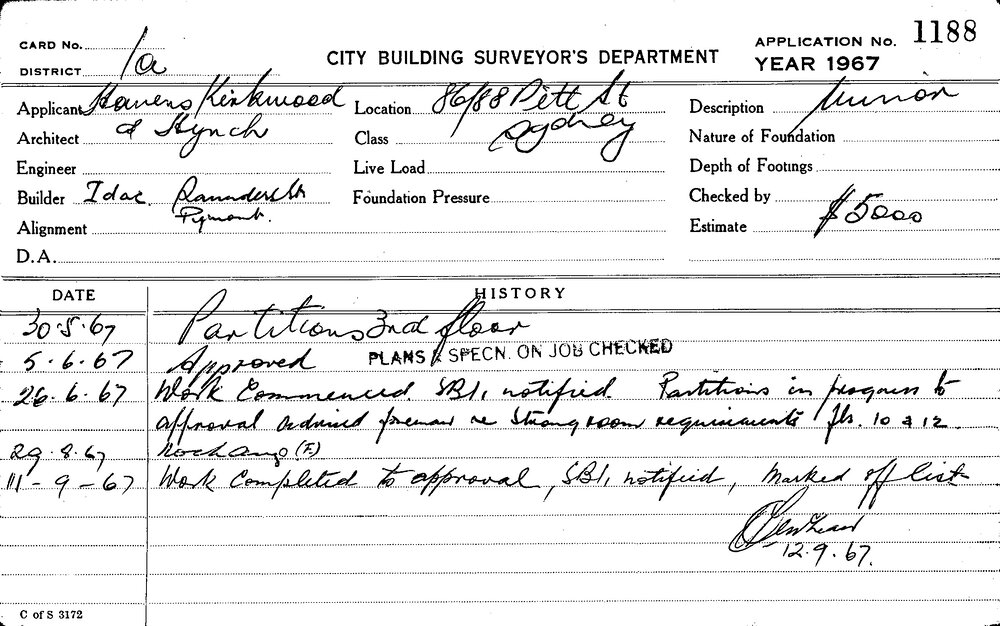 CARD No.
1a
DISTRICT
CITY BUILDING SURVEYOR'S DEPARTMENT
APPLICATION No. 1188
YEAR 1967
Applicant Kirkwood
& Hynch
Location 86/88 Pitt St
Sydney
Description Minor
Architect
Class
Nature of Foundation
Engineer
Live Load
Depth of Footings
Builder Idac. Saunders St
Pyrmont.
Foundation Pressure
Checked by
Alignment
Estimate $5000
D.A.
DATE
HISTORY
30.5.67 Partitions 3rd floor
5.6.67 Approved PLANS & SPECN. ON JOB CHECKED
26.6.67 Work Commenced. SB1, notified. Partitions in progress to
approval advised foreman re Strong room requirements fls. 10 & 12.
29.8.67 (F)
111-9-67 Work Completed to approval, SB1, notified, Marked off list
12.9.67.
C of S 3172